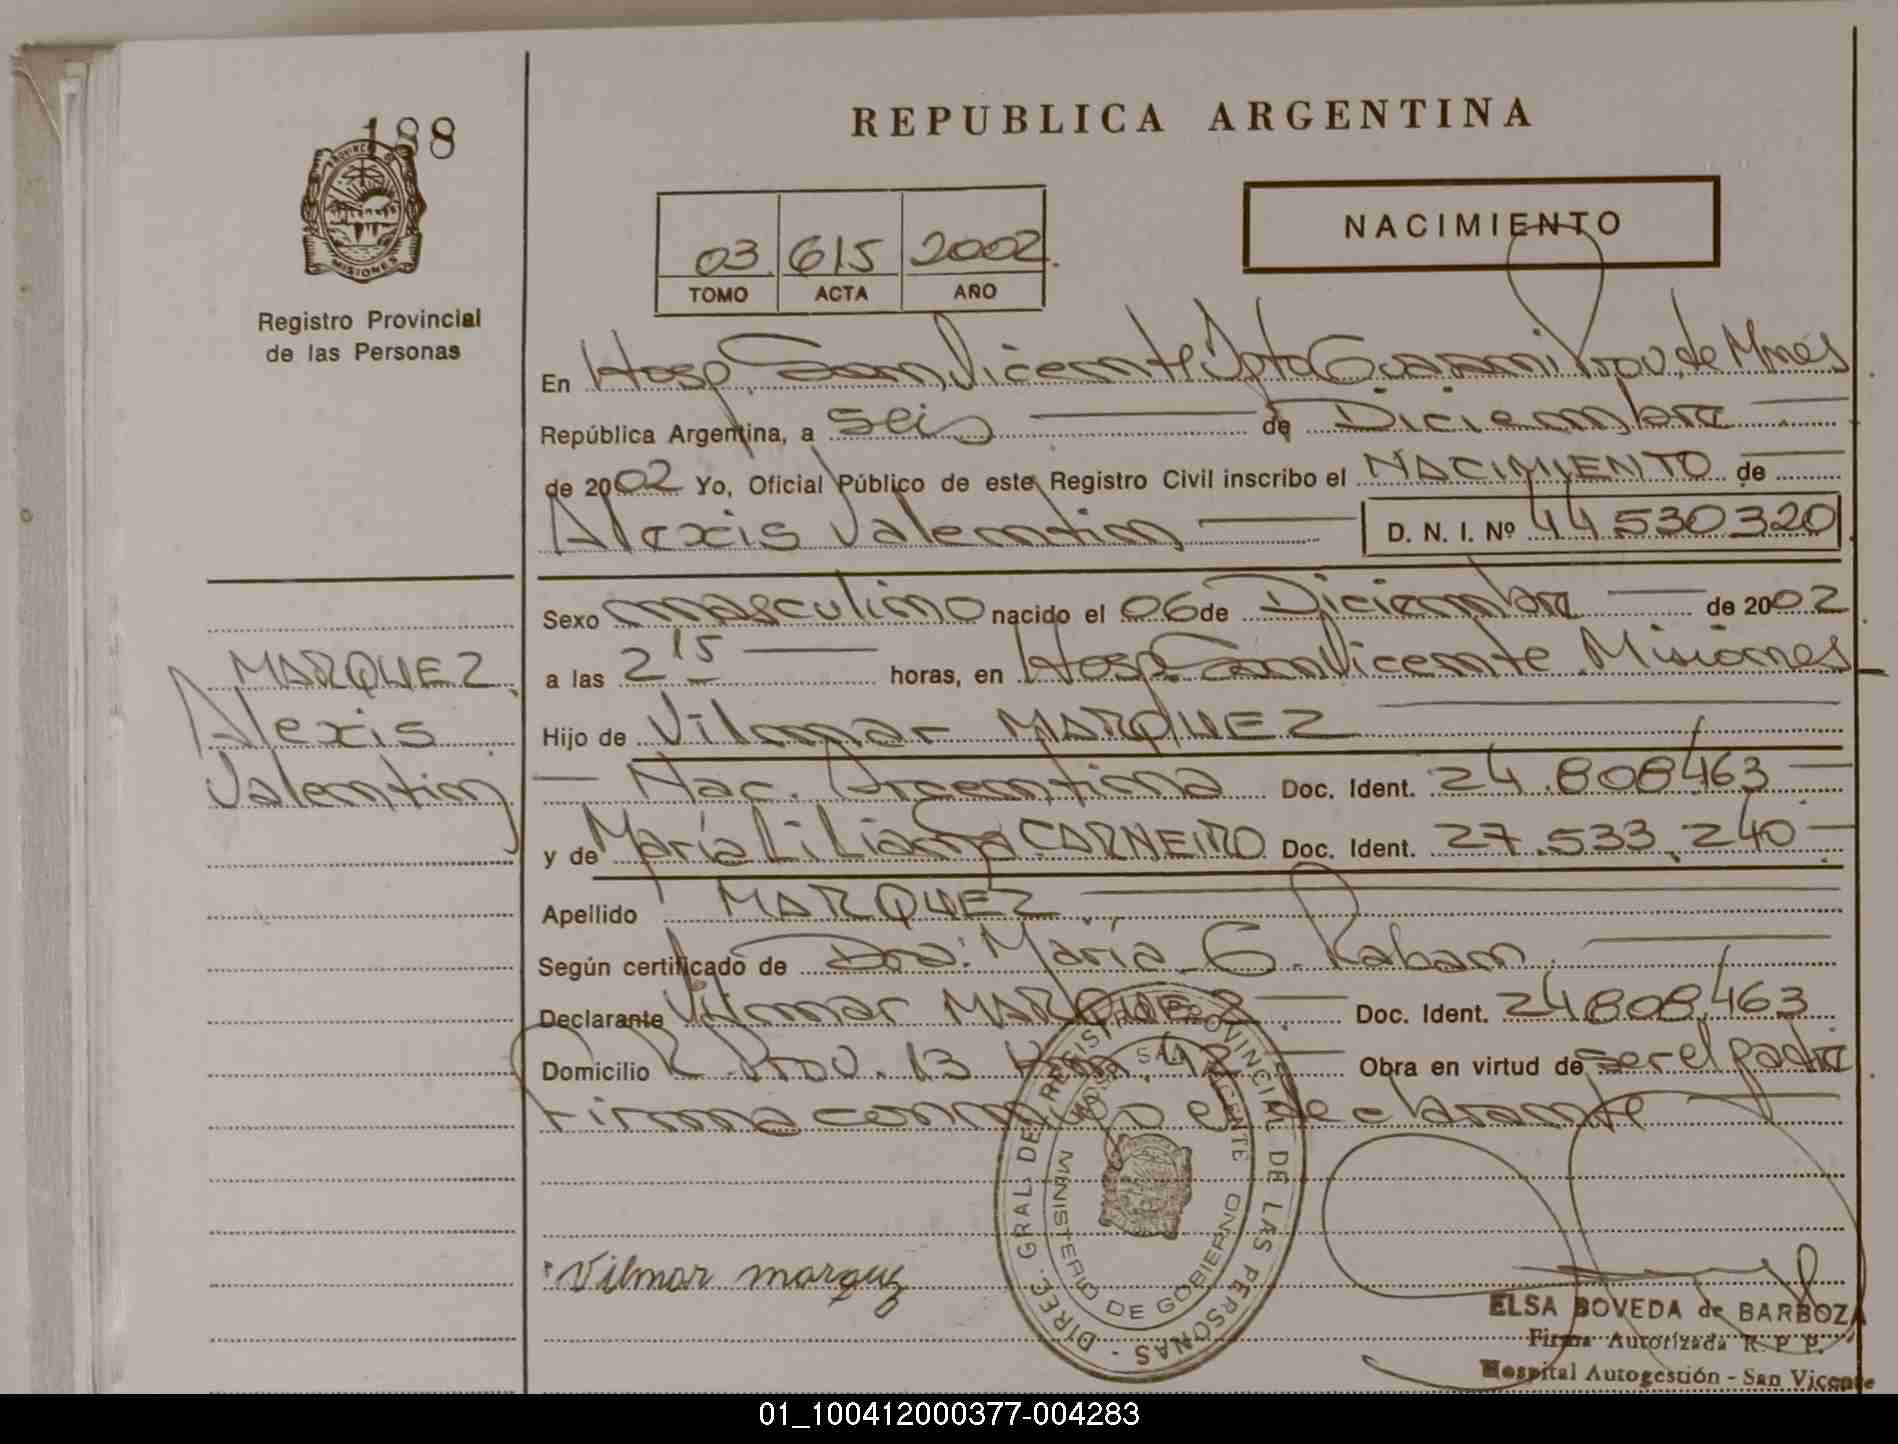 188
PROVINCIA DE
MISIONES
Registro Provincial
de las Personas
MARQUEZ
Alexis
Valentin
REPUBLICA ARGENTINA
03 615 2002
TOMO ACTA AÑO
NACIMIENTO
En Hosp. San Vicente Dpto Guarani Prov. de Mnes
República Argentina, a seis de Diciembre
de 2002 Yo, Oficial Público de este Registro Civil inscribo el NACIMIENTO de
Alexis Valentin D. N. I. Nº 44530320
Sexo masculino nacido el 06 de Diciembre de 2002
a las 2 15 horas, en Hosp. San Vicente Misiones
Hijo de Vilmar MARQUEZ
Nac. Argentina Doc. Ident. 24.808463
y de María Liliana CARNEIRO Doc. Ident. 27.533.240
Apellido MARQUEZ
Según certificado de Dra. María G. Raban
Declarante Vilmar MARQUEZ Doc. Ident. 24808463
Domicilio R. Prov. 13 Km. Obra en virtud de ser el padre
Firma conmigo el declarante
DIREC. GRAL. DEL REGISTRO PROVINCIAL DE LAS PERSONAS -
HOSP. SAN VICENTE
MINISTERIO DE GOBIERNO
Vilmar marquez
ELSA BOVEDA de BARBOZA
Firma Autorizada R. P. P.
Hospital Autogestión - San Vicente
01_100412000377-004283